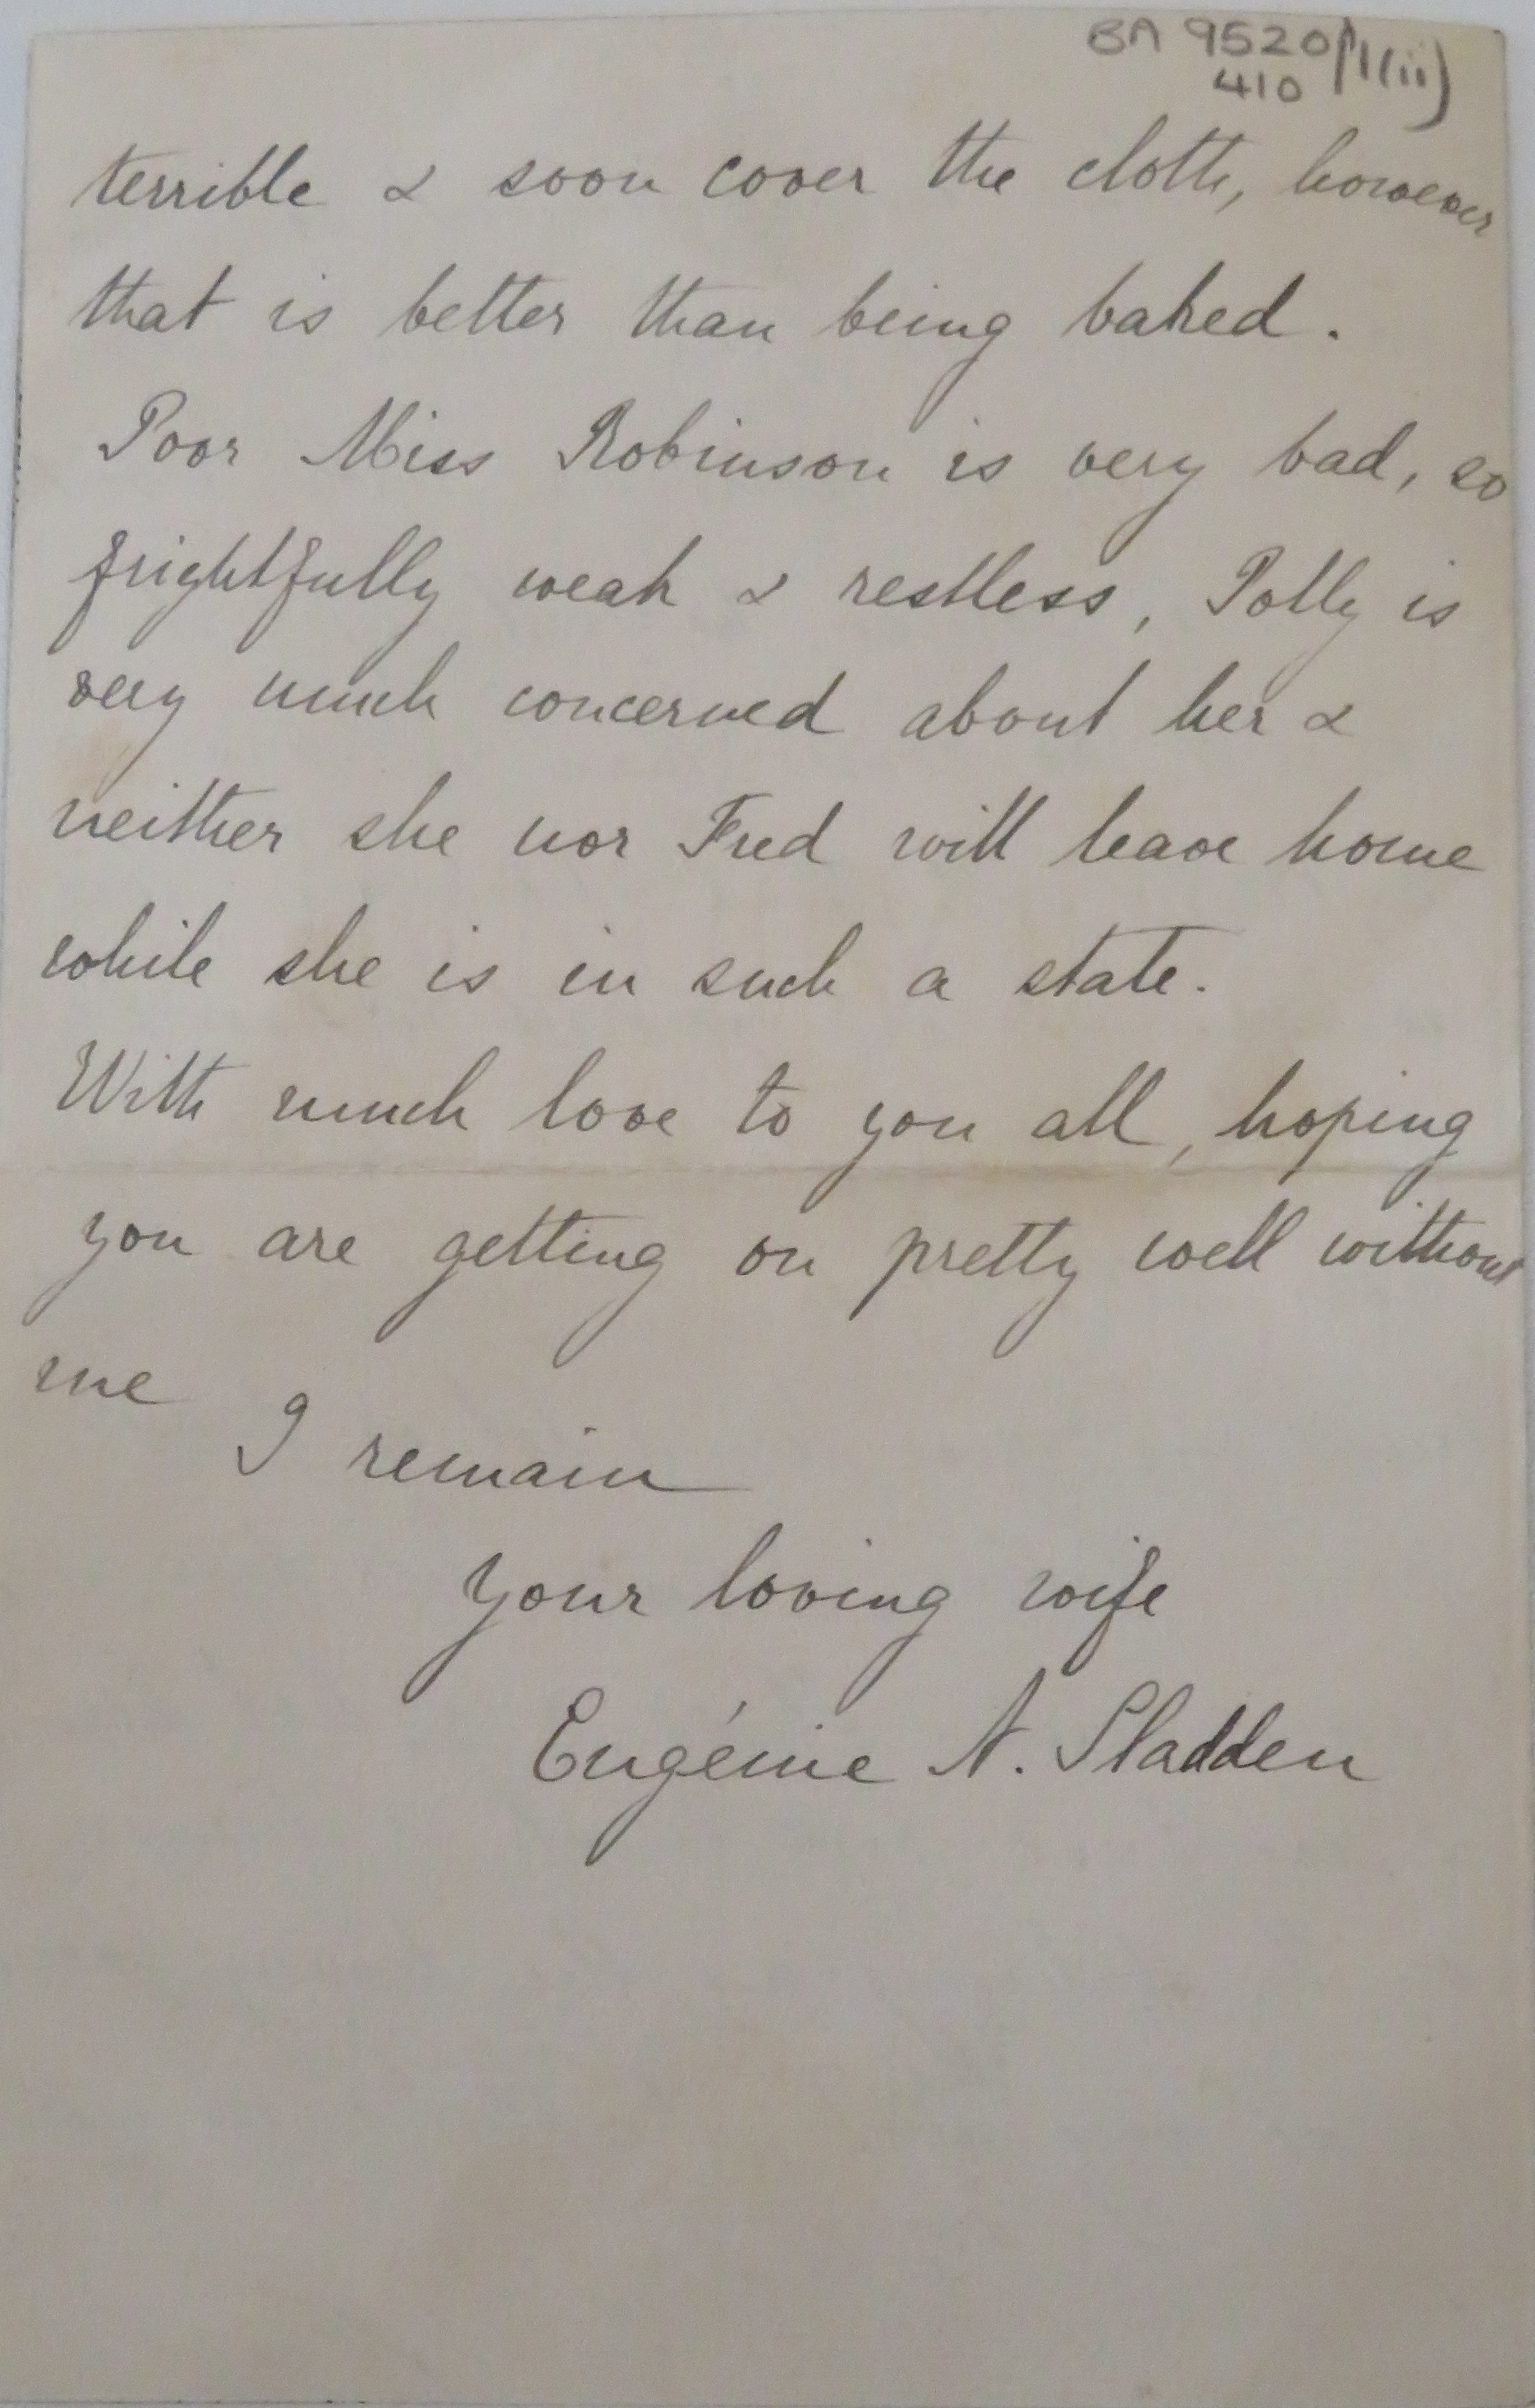 BA 9520/1(ii)
410
terrible & soon cover the cloth, however
that is better than being baked.
Poor Miss Robinson is very bad, so
frightfully weak & restless, Polly is
very much concerned about her &
neither she nor Fred will leave home
while she is in such a state.
With much love to you all, hoping
you are getting on pretty well without
me
I remain
your loving wife
Eugénie N. Sladden